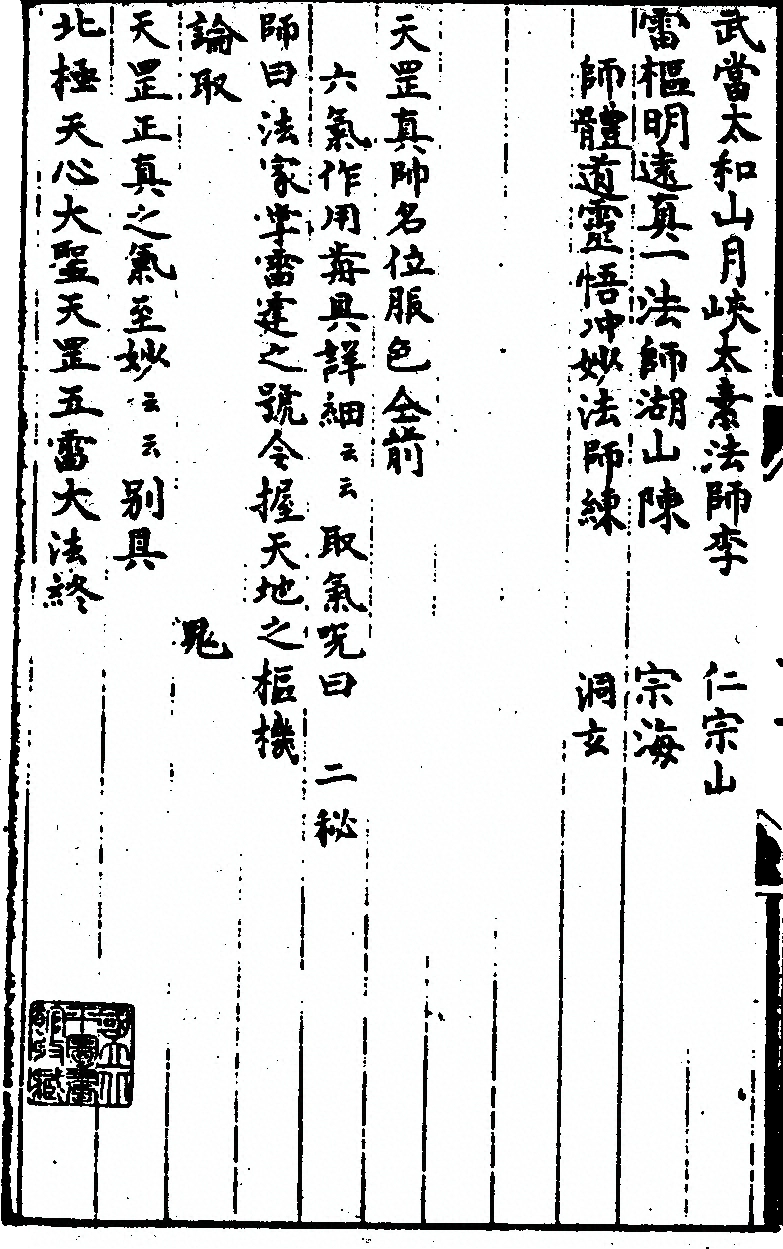 武當太和山月峽太素法師李 仁宗山
雷樞明遠真一法師湖山陳 宗海
師體道靈悟冲妙法師練 洞玄
天罡真帥名位服色仝前
六氣作用每具詳細云云 取氣呪曰 二秘
師曰法家掌雷霆之號令握天地之樞機
論取
天罡正真之氣至妙云云 别具
北極天心大聖天罡五雷大法終
國立北
平圖書
館收藏